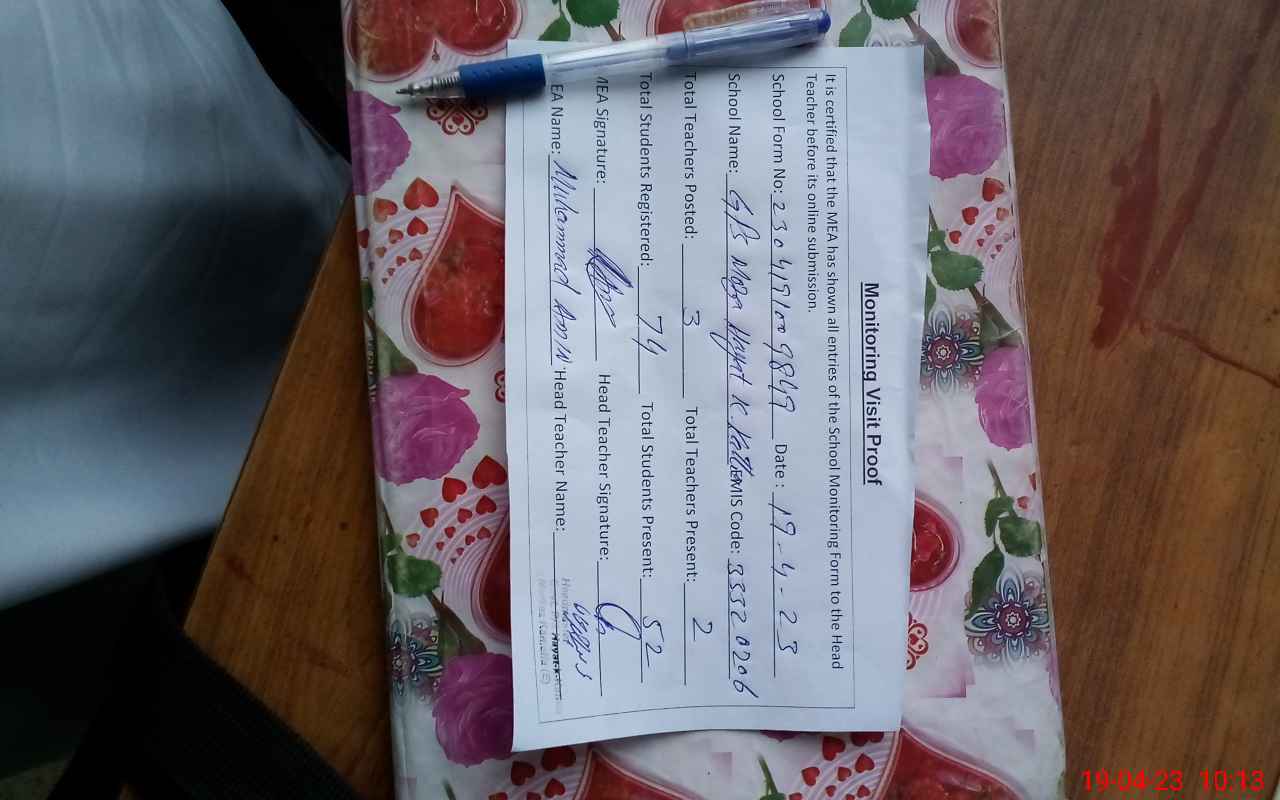 Monitoring Visit Proof
It is certified that the MEA has shown all entries of the School Monitoring Form to the Head
Teacher before its online submission.
School Form No: 2304191009849 Date : 19-4-23
School Name: GPS Moza Hayat K. MIS Code: 33320206
Total Teachers Posted: 3 Total Teachers Present: 2
Total Students Registered: 74 Total Students Present: 52
MEA Signature: Head Teacher Signature:
EA Name: Muhammad Amin Head Teacher Name:
19-04-23 10:13